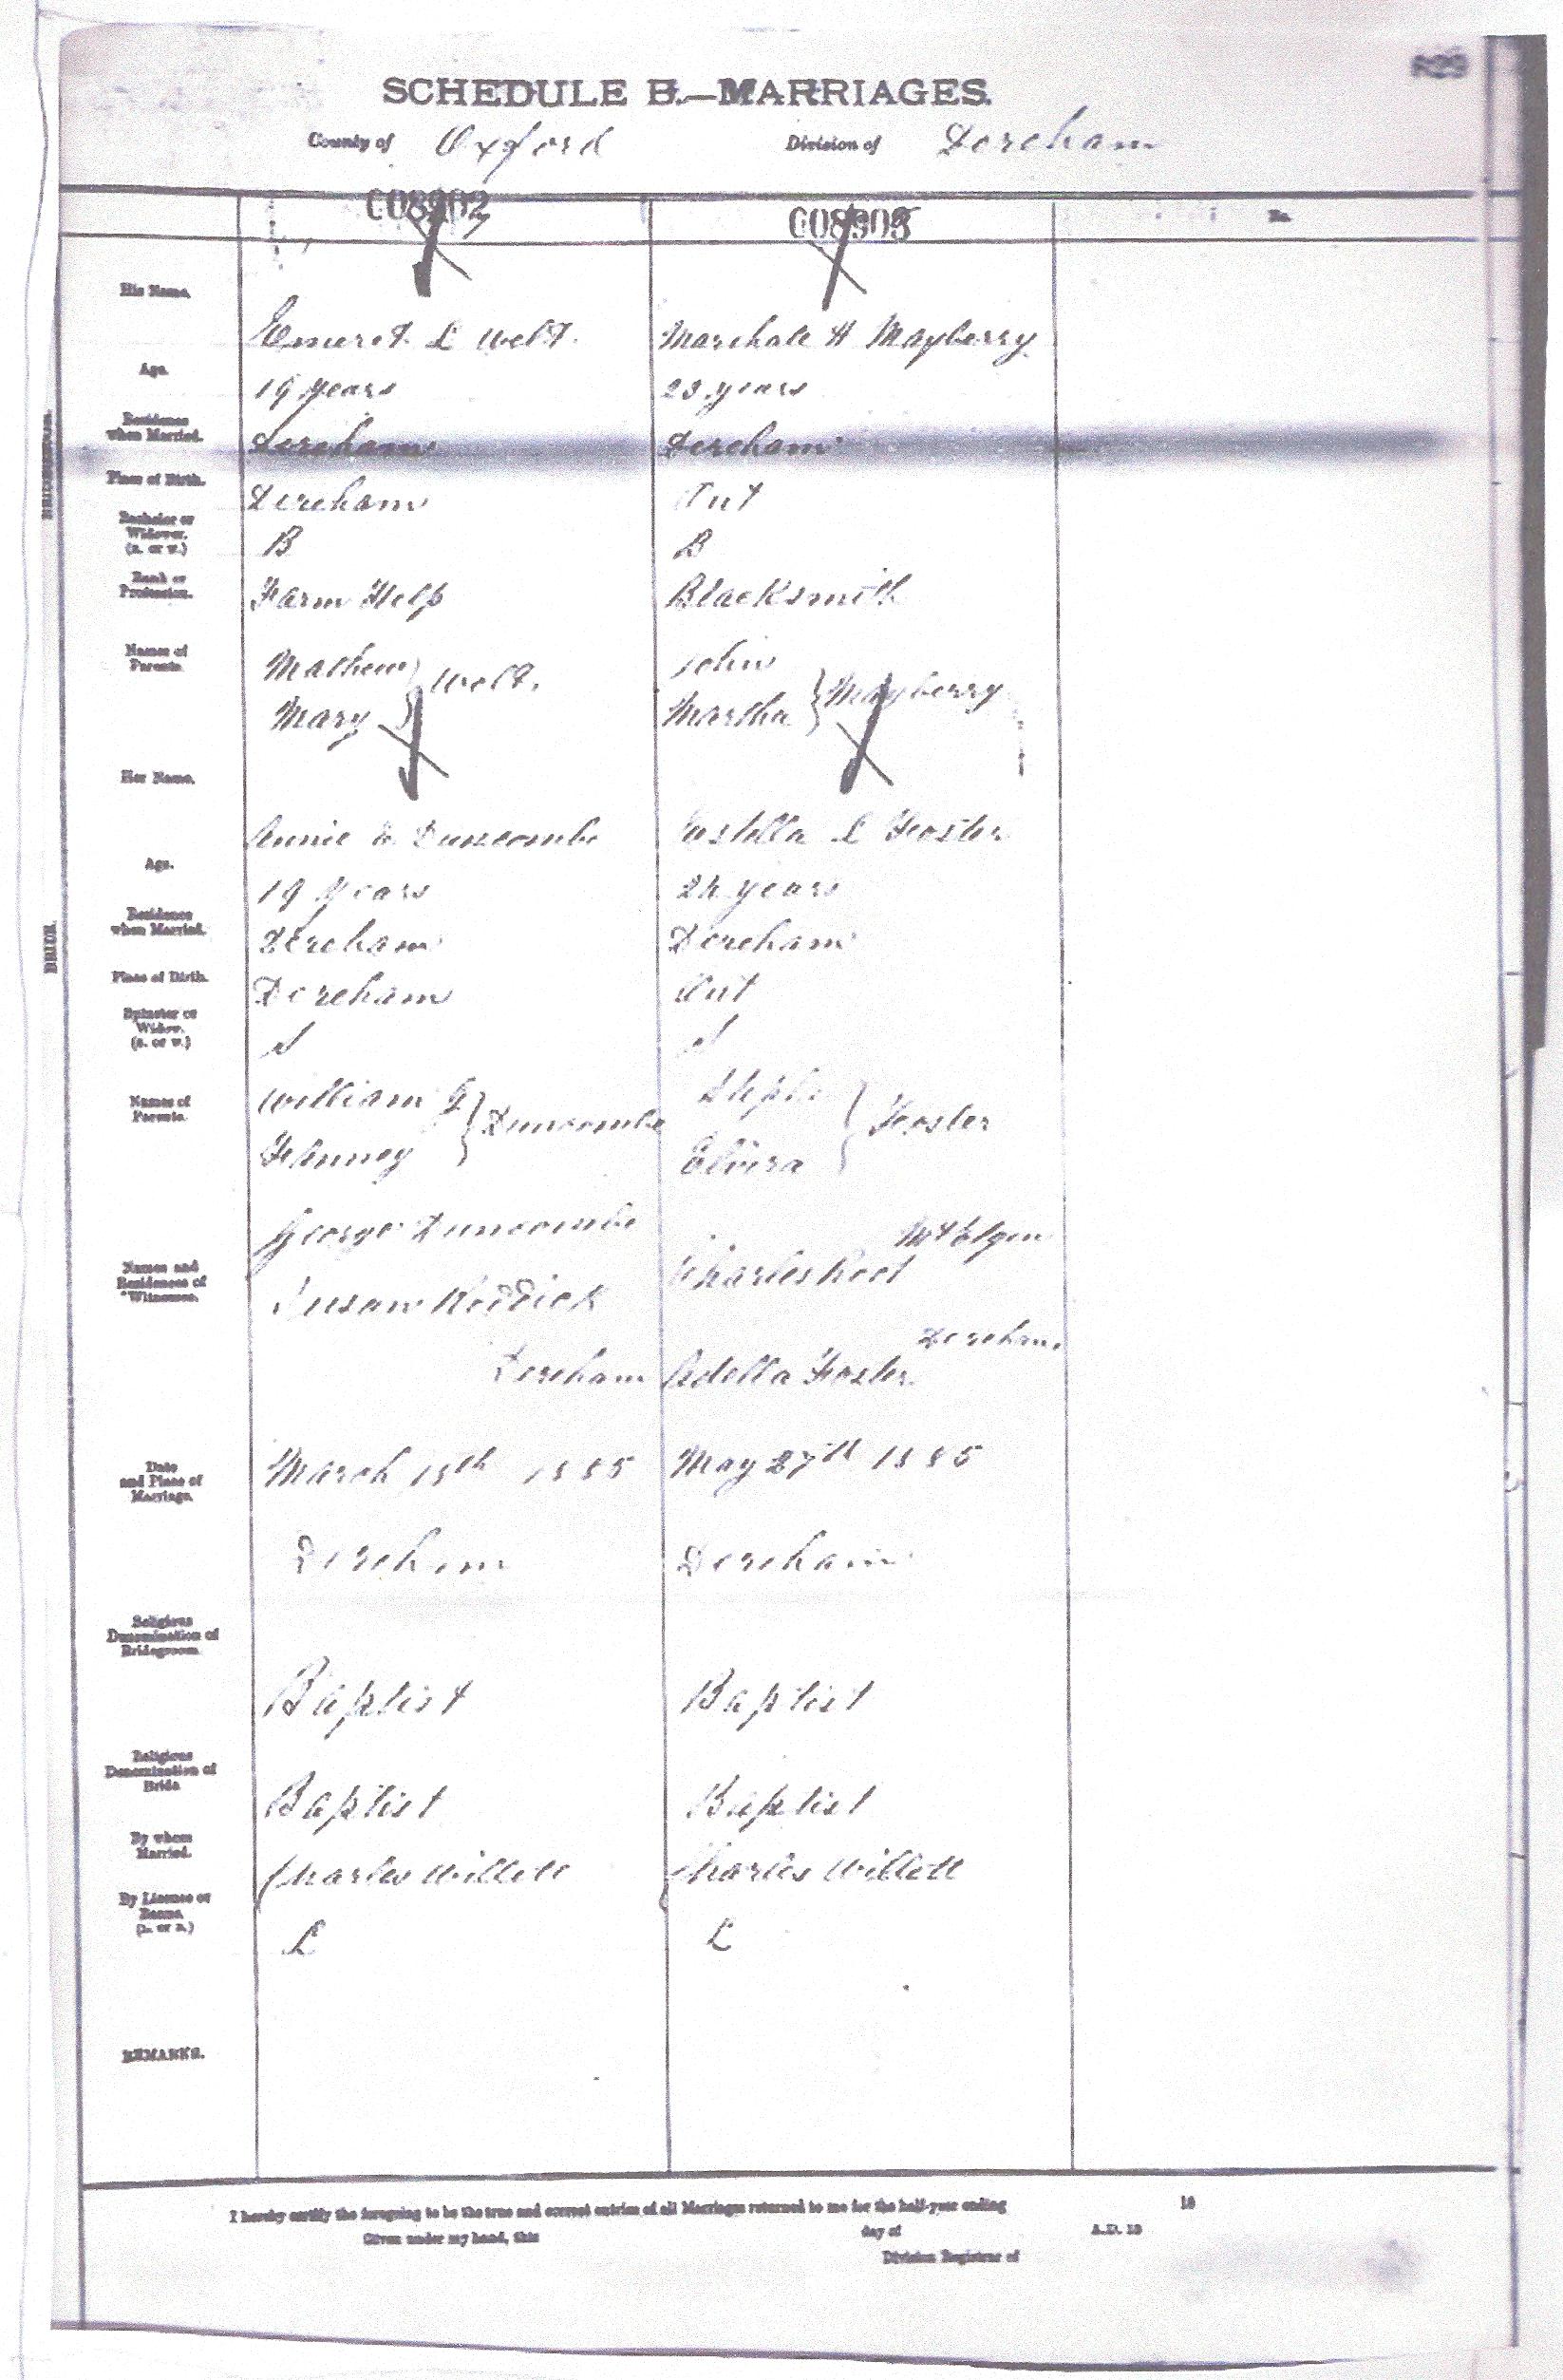 829
SCHEDULE B.—MARRIAGES.
County of Oxford Division of Dereham
008902 008903 No.
His Name. Emeret L Welt. Marshale H Mayberry
Age. 19 years 23 years
Residence when Married. Dereham Dereham
Place of Birth. Dereham Ont
Bachelor or Widower. (B. or W.) B B
Rank or Profession. Farm Help Blacksmith
Names of Parents. Mathew John
Mary } Welt. Martha } Mayberry
BRIDEGROOM.
Her Name. Annie E Duncombe Estella L Foster
Age. 19 Years 24 years
Residence when Married. Dereham Dereham
Place of Birth. Dereham Ont
Spinster or Widow. (S. or W.) S S
Names of Parents. William G Steph
Fanney } Duncombe Elvira } Foster
BRIDE.
George Duncombe Mt Elgin
Names and Residences of Witnesses. Susan Reddick Charles
Dereham
Dereham Adella Foster
Date and Place of Marriage. March 18th 1885 May 27th 1885
Dereham Dereham
Religious Denomination of Bridegroom. Baptist Baptist
Religious Denomination of Bride. Baptist Baptist
By whom Married. Charles Willett Charles Willett
By License or Banns. (L. or B.) L L
REMARKS.
I hereby certify the foregoing to be the true and correct entries of all Marriages returned to me for the half-year ending 18
Given under my hand, this day of A.D. 18
Division Registrar of